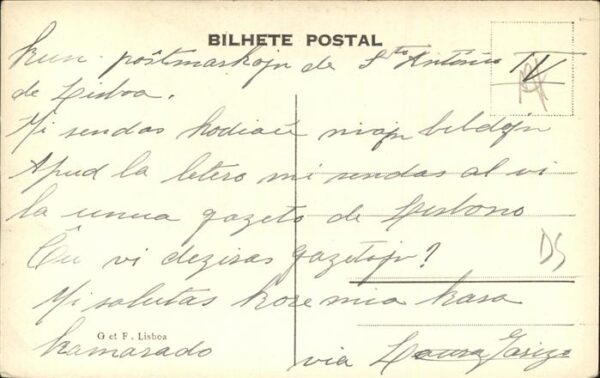 BILHETE POSTAL
kun poŝtmarkojn de Sto António IV
de Lisboa.
Mi sendas hodiaŭ miajn bildojn
Apud la letero mi sendas al vi
la unua gazeto de Lisbono
Ĉu vi deziras gazetojn?
DS
Mi salutas kore mia kara
G et F. Lisboa
kamarado via Laura